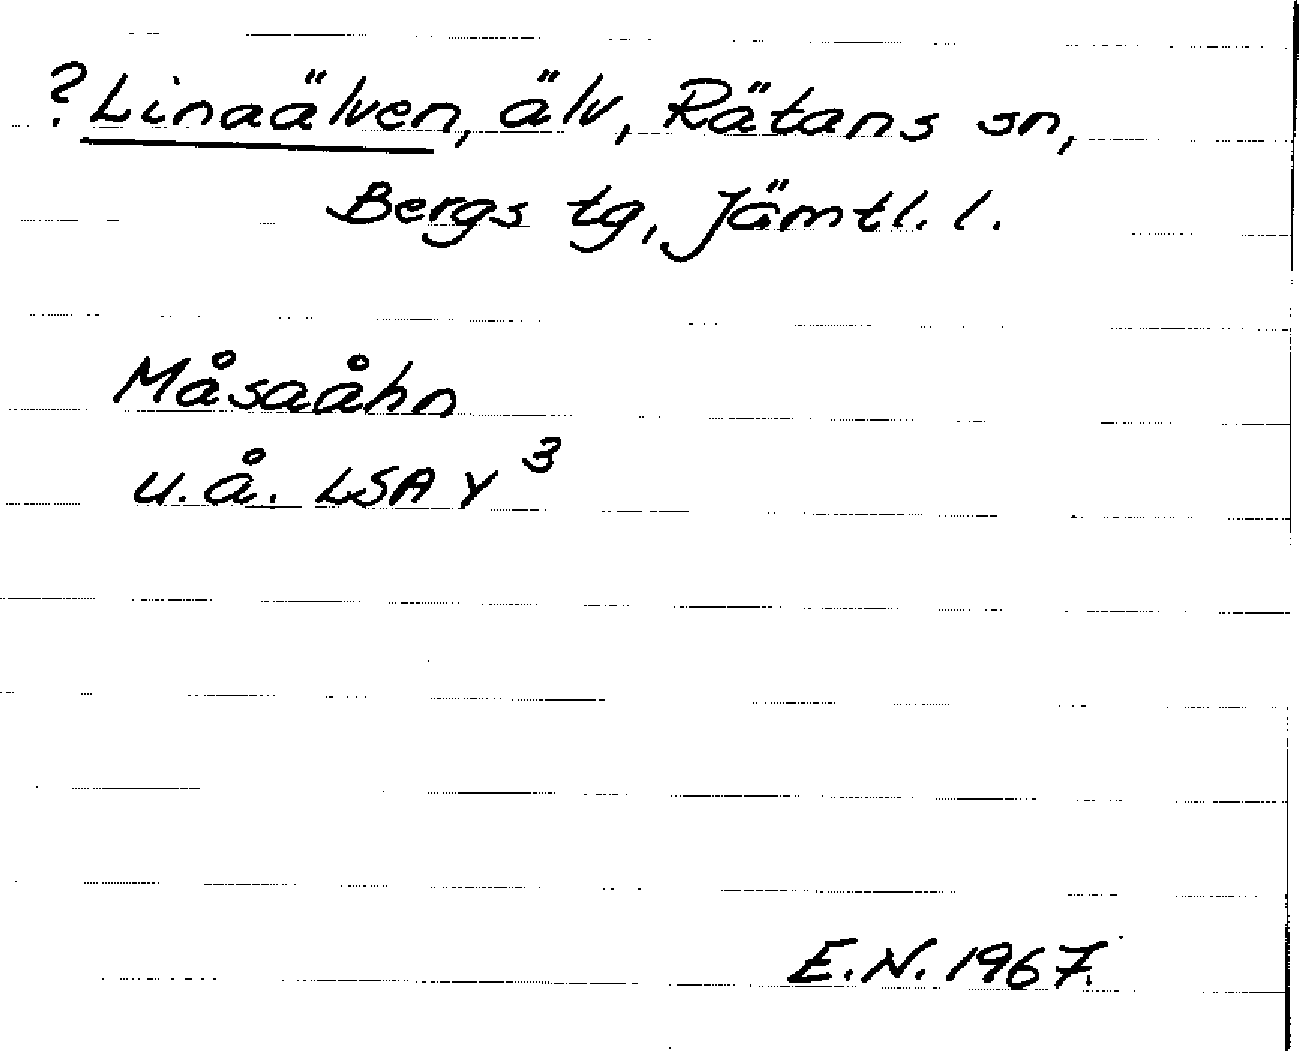 ?Linaälven, älv, Rätans sn,
Bergs tg, Jämtl. l.
Måsaåhn
u.å. LSA Y 3
E.N. 1967.